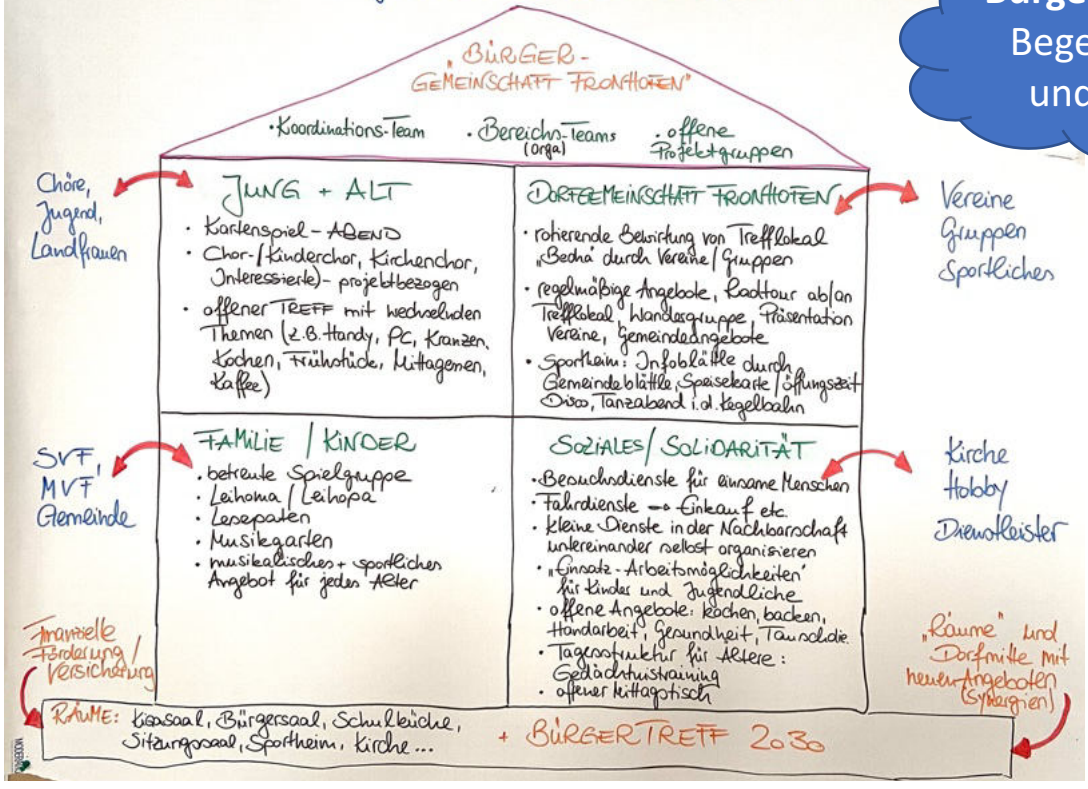 Bürge
Bege
und
„BÜRGER-
GEMEINSCHAFT FRONHOFEN"
· Koordinations-Team
· Bereichs-Teams
(Orga)
· offene
Projektgruppen
Chöre,
Jugend,
Landfrauen
JUNG + ALT
· Kartenspiel-ABEND
· Chor-/Kinderchor, Kirchenchor,
Interessierte)- projektbezogen
· offener TREFF mit wechselnden
Themen (z.B. Handy, PC, Kranzen,
Kochen, Frühstück, Mittagessen,
Kaffee)
DORFGEMEINSCHAFT FRONHOFEN
· rotierende Bewirtung von Trefflokal
„Becha" durch Vereine/Gruppen
· regelmäßige Angebote, Radtour ab/an
Trefflokal, Wandergruppe, Präsentation
Vereine, Gemeindeangebote
· Sportheim: Infoblättle durch
Gemeindeblättle, Speisekarte/öffungszeit
Disco, Tanzabend i.d. Kegelbahn
Vereine
Gruppen
Sportliches
SVF,
MVF
Gemeinde
FAMILIE / KINDER
· betreute Spielgruppe
· Leihoma / Leihopa
· Lesepaten
· Musikgarten
· musikalisches + sportliches
Angebot für jedes Alter
SOZIALES/ SOLIDARITÄT
· Besuchsdienste für einsame Menschen
· Fahrdienste → Einkauf etc.
· kleine Dienste in der Nachbarschaft
untereinander selbst organisieren
· „Einsatz-Arbeitsmöglichkeiten"
für Kinder und Jugendliche
· offene Angebote: kochen, backen,
Handarbeit, Gesundheit, Tauschdie.
· Tagesstruktur für Ältere:
Gedächtnistraining
· offener Mittagstisch
Kirche
Hobby
Dienstleister
Finanzielle
Förderung/
Versicherung
„Räume" und
Dorfmitte mit
neuen Angeboten
(Synergien)
RÄUME: Bürgersaal, Schulküche,
Sitzungssaal, Sportheim, Kirche...
+ BÜRGERTREFF 2030